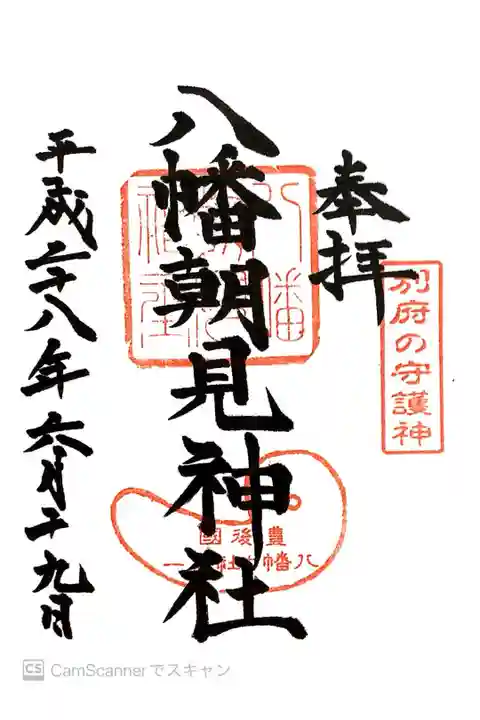 奉拝
別府の守護神
八幡朝見神社
豊後國
平成二十八年六月二十九日
CS CamScannerでスキャン